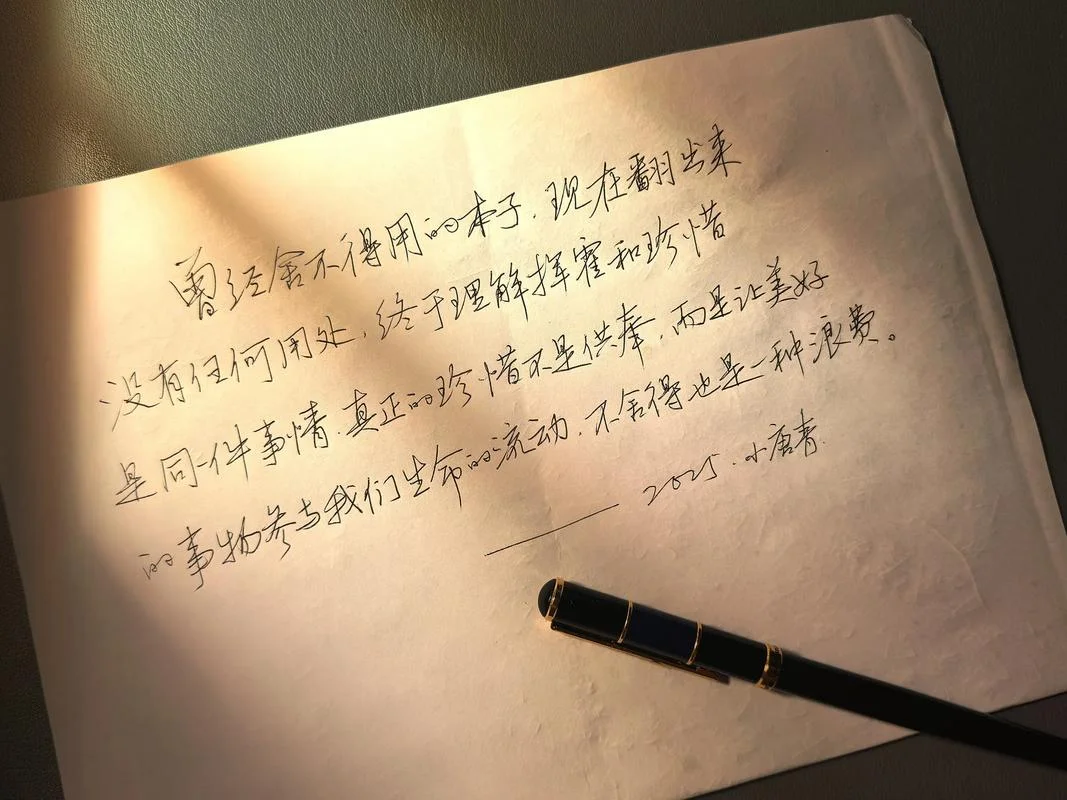 曾经舍不得用的本子,现在翻出来
没有任何用处,终于理解挥霍和珍惜
是同一件事情.真正的珍惜不是供奉,而是让美好
的事物参与我们生命的流动.不舍得也是一种浪费。
——2025.小唐青.